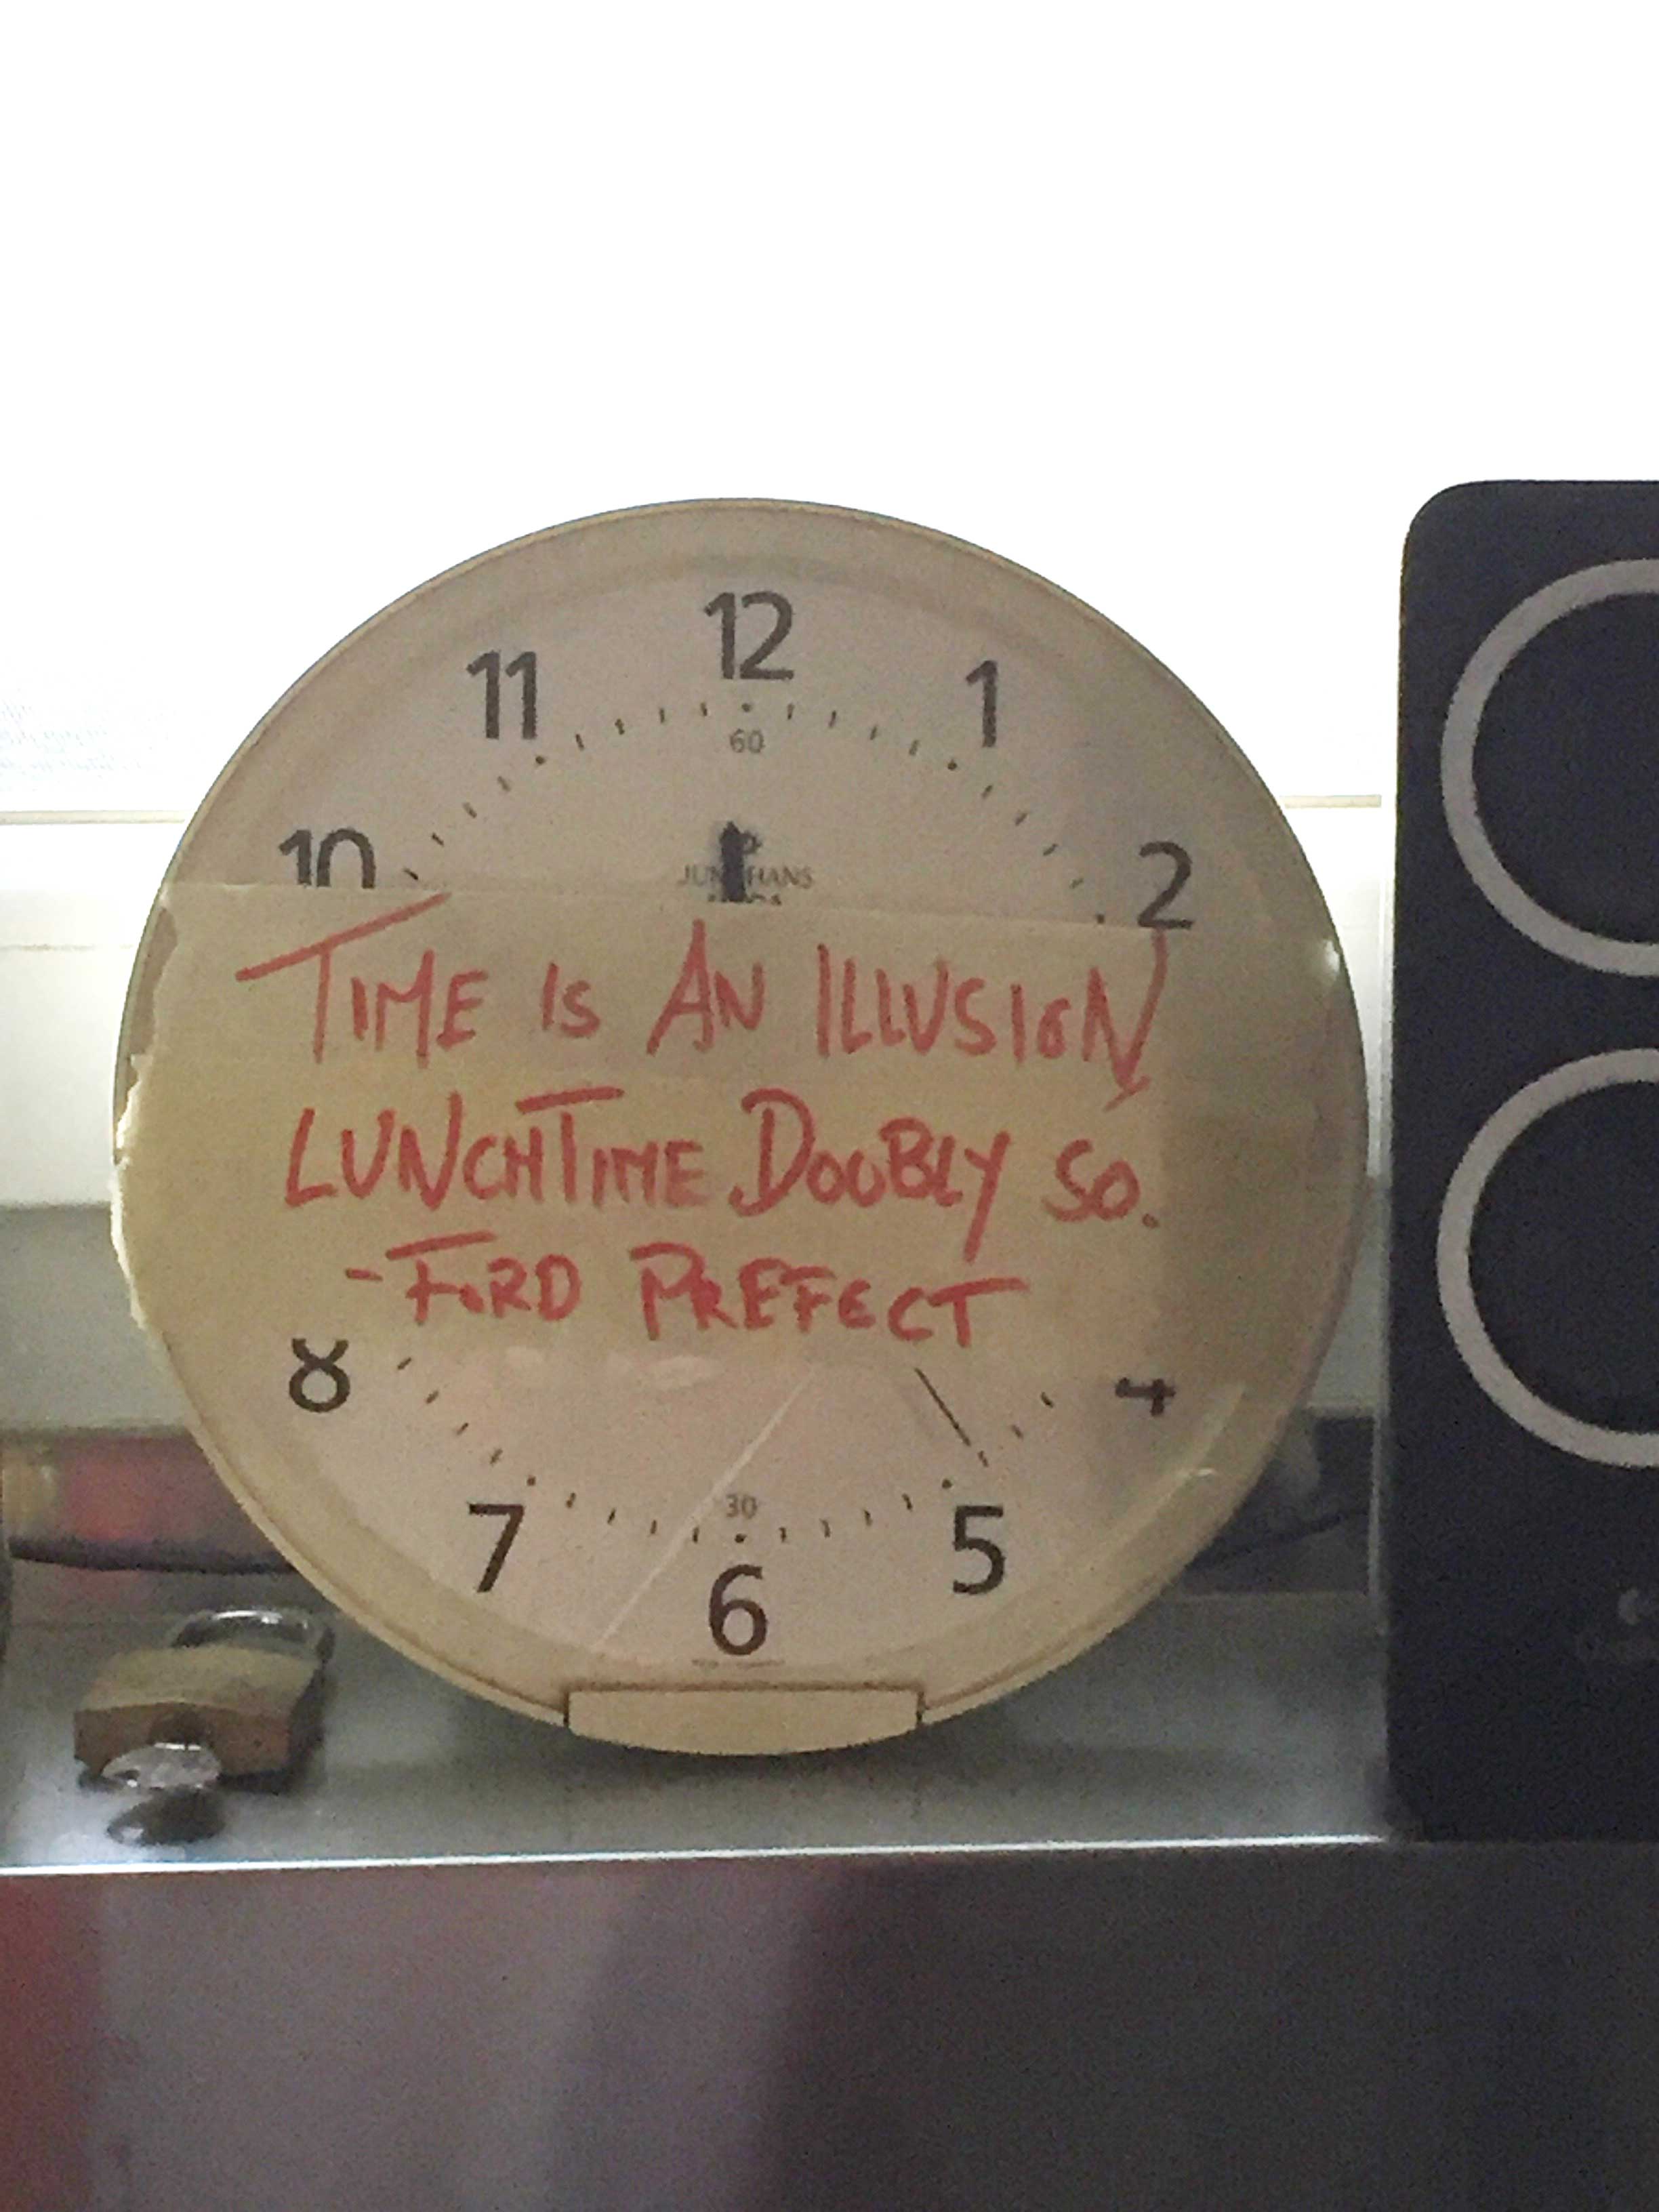 12
11
1
60
10
2
JUNGHANS
TIME IS AN ILLUSION
LUNCHTIME DOUBLY SO.
- FORD PREFECT
8
4
30
7
5
6